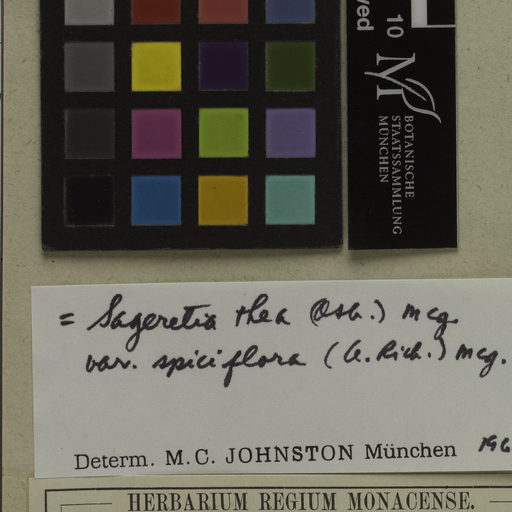 ved
10
M
BOTANISCHE
STAATSSAMMLUNG
MÜNCHEN
= Sageretia thea (Osb.) mcg.
var. spiciflora (A. Rich.) mcg.
Determ. M. C. JOHNSTON München 196
HERBARIUM REGIUM MONACENSE.